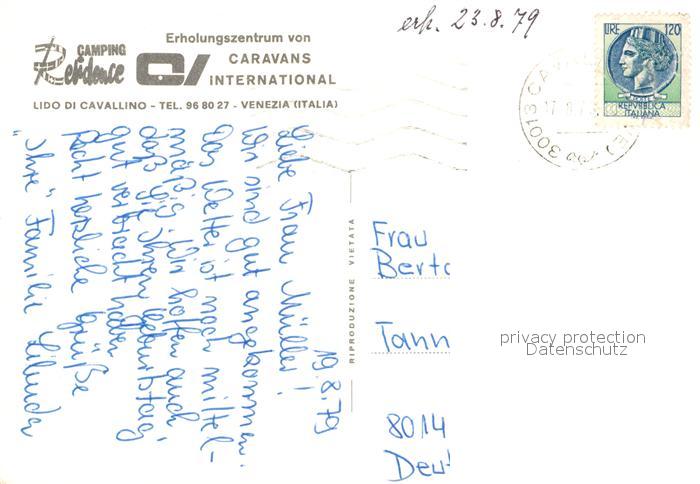 erh. 23.8.79
CAMPING
Residence
Erholungszentrum von
CARAVANS
INTERNATIONAL
LIDO DI CAVALLINO – TEL. 96 80 27 – VENEZIA (ITALIA)
LIRE 120
REPVBBLICA
ITALIANA
30013 CAV
19.8.79
Liebe Frau Müller!
Wir sind gut angekommen.
Das Wetter ist noch mittel-
mäßig. Wir hoffen auch,
daß Sie Ihren Geburtstag
gut verbracht haben.
Recht herzliche Grüße
"Ihre" Familie
RIPRODUZIONE VIETATA
Frau
Berta
Tann
8014
Deut
privacy protection
Datenschutz